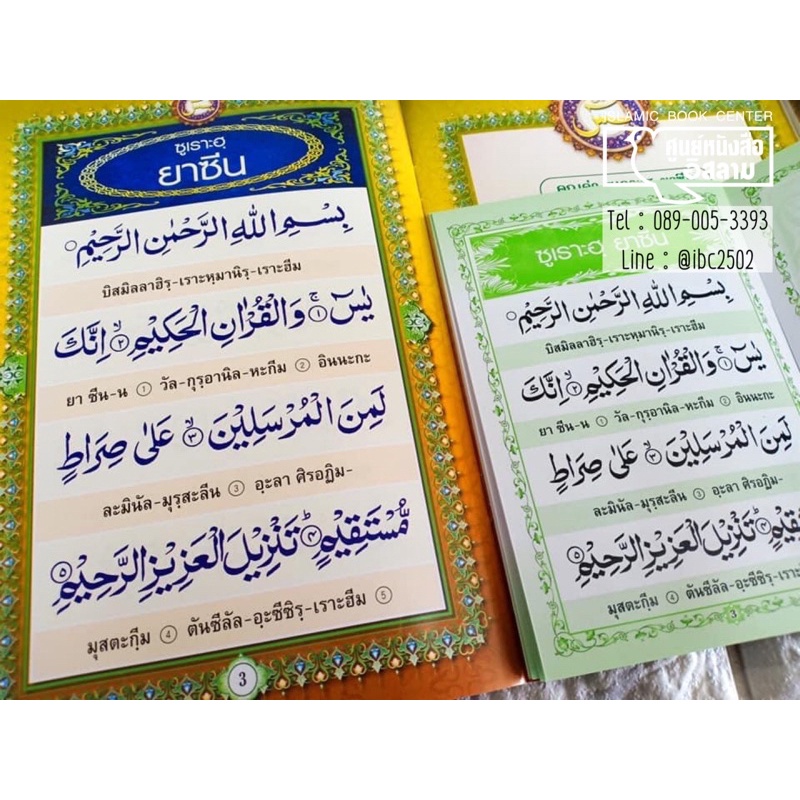 ซูเราะฮฺ
ยาซีน
بِسْمِ اللهِ الرَّحْمٰنِ الرَّحِيْمِ
บิสมิลลาฮิรฺ-เราะหฺมานิรฺ-เราะฮีม
يٰسٓ ۚ ﴿١﴾ وَالْقُرْاٰنِ الْحَكِيْمِ ۙ ﴿٢﴾ اِنَّكَ
ยา ซีน-น ① วัล-กุรฺอานิล-หะกีม ② อินนะกะ
لَمِنَ الْمُرْسَلِيْنَ ۙ ﴿٣﴾ عَلٰى صِرَاطٍ
ละมินัล-มุรฺสะลีน ③ อะลา ศิรอฏิม-
مُّسْتَقِيْمٍ ؕ ﴿٤﴾ تَنْزِيْلَ الْعَزِيْزِ الرَّحِيْمِ ۙ ﴿٥﴾
มุสตะกีม ④ ตันซีลัล-อะซีซิรฺ-เราะฮีม ⑤
3
ISLAMIC BOOK CENTER
ศูนย์หนังสือ
อิสลาม
Tel : 089-005-3393
Line : @ibc2502
ซูเราะฮฺ ยาซีน
بِسْمِ اللهِ الرَّحْمٰنِ الرَّحِيْمِ
บิสมิลลาฮิรฺ-เราะหฺมานิรฺ-เราะฮีม
يٰسٓ ۚ ﴿١﴾ وَالْقُرْاٰنِ الْحَكِيْمِ ۙ ﴿٢﴾ اِنَّكَ
ยา ซีน-น ① วัล-กุรฺอานิล-หะกีม ② อินนะกะ
لَمِنَ الْمُرْسَلِيْنَ ۙ ﴿٣﴾ عَلٰى صِرَاطٍ
ละมินัล-มุรฺสะลีน ③ อะลา ศิรอฏิม-
﴿٤﴾ تَنْزِيْلَ الْعَزِيْزِ الرَّحِيْمِ ۙ ﴿٥﴾
มุสตะกีม ④ ตันซีลัล-อะซีซิรฺ-เราะฮีม ⑤
3